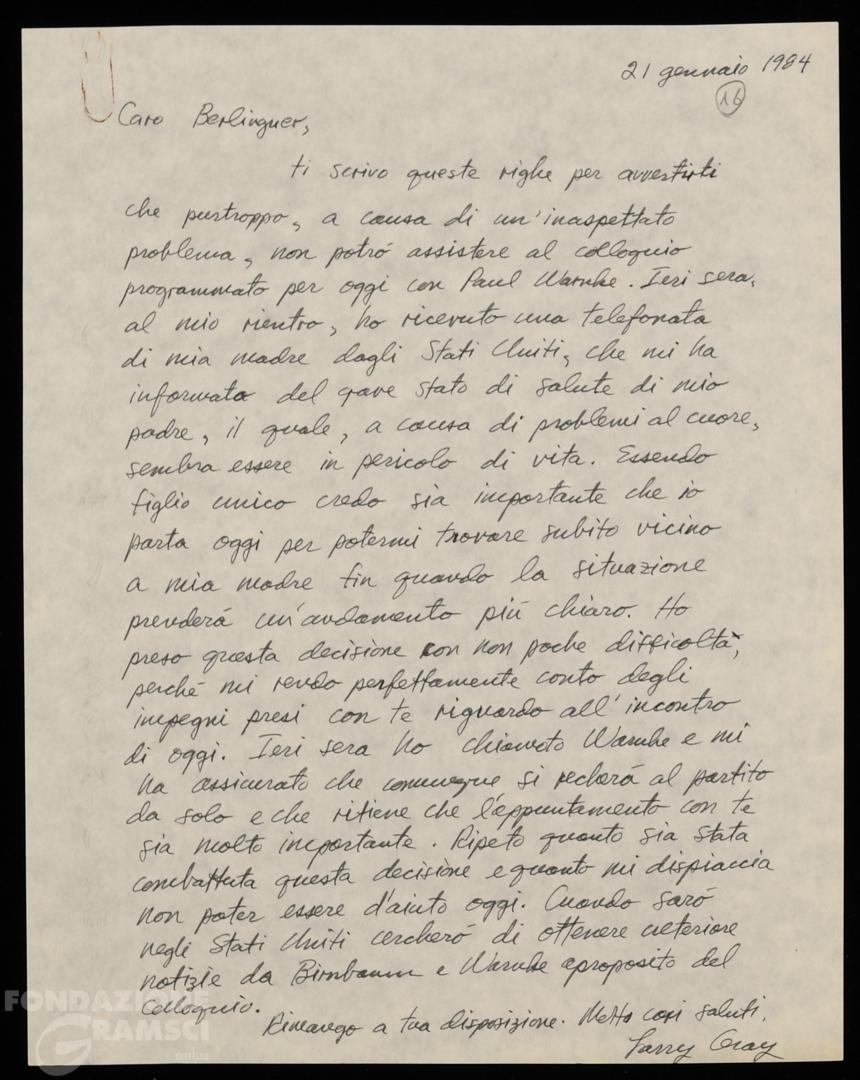 21 gennaio 1984
16
Caro Berlinguer,
ti scrivo queste righe per avvertirti
che purtroppo, a causa di un'inaspettato
problema, non potró assistere al colloquio
programmato per oggi con Paul Warnke. Ieri sera,
al mio rientro, ho ricevuto una telefonata
di mia madre dagli Stati Uniti, che mi ha
informato del grave stato di salute di mio
padre, il quale, a causa di problemi al cuore,
sembra essere in pericolo di vita. Essendo
figlio unico credo sia importante che io
parta oggi per potermi trovare subito vicino
a mia madre fin quando la situazione
prenderá un'andamento piú chiaro. Ho
preso questa decisione con non poche difficoltà,
perché mi rendo perfettamente conto degli
impegni presi con te riguardo all'incontro
di oggi. Ieri sera ho chiamato Warnke e mi
ha assicurato che comunque si recherá al partito
da solo e che ritiene che l'appuntamento con te
sia molto importante. Ripeto quanto sia stata
combattuta questa decisione e quanto mi dispiaccia
non poter essere d'aiuto oggi. Quando saró
negli Stati Uniti cercheró di ottenere ulteriore
notizie da Birnbaum e Warnke aproposito del
colloquio.
Rimango a tua disposizione. Molto cari saluti,
Larry Gray
FONDAZIONE
GRAMSCI
onlus